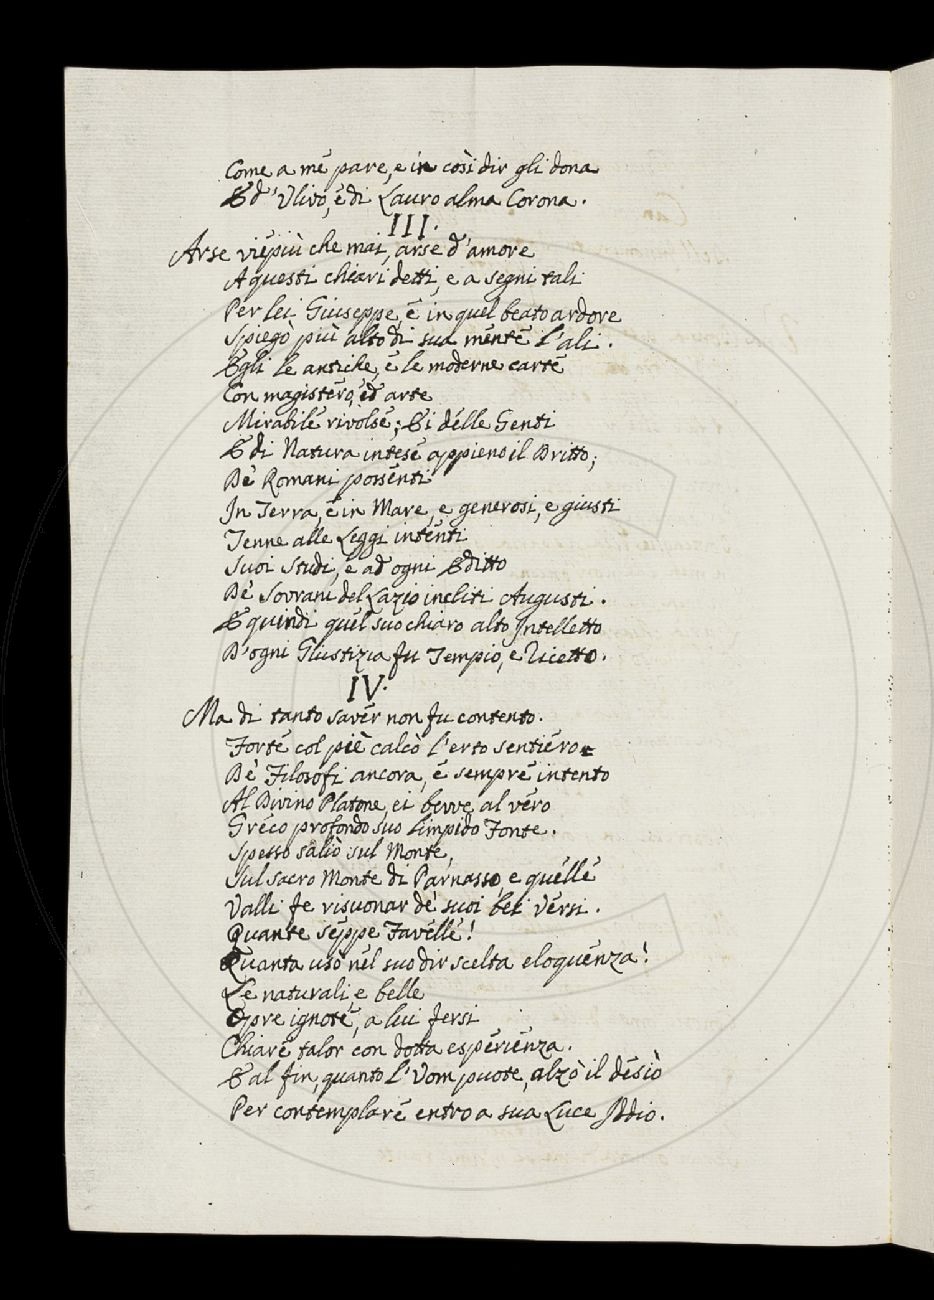 Come a me pare, e in così dir gli dona
Ed' Ulivo, e di Lauro alma Corona.
III.
Arse viepiù che mai, arse d'amore
A questi chiari detti, e a segni tali
Per lei Giuseppe, e in quel beato ardore
Spiegò più alto di sua mente l'ali.
Egli le antiche, e le moderne carte
Con magistero, ed arte
Mirabile rivolse; Ei delle Genti
E di Natura intese appieno il Dritto;
De' Romani possenti
In Terra, e in Mare, e generosi, e giusti
Tenne alle Leggi intenti
Suoi Studi, e ad ogni Editto
De' Sovrani del Lazio incliti Augusti.
E quindi quel suo chiaro alto Intelletto
D'ogni Giustizia fu Tempio, e Ricetto.
IV.
Ma di tanto saver non fu contento.
Forte col piè calcò l'erto sentiero
De' Filosofi ancora, e sempre intento
Al Divino Platone, ei bevve al vero
Greco profondo suo limpido Fonte.
Spesso salìo sul Monte,
Sul sacro Monte di Parnasso, e quelle
Valli fe risuonar de' suoi bei versi.
Quante seppe Favelle!
Quanta usò nel suo dir scelta eloquenza!
Le naturali, e belle
Opre ignote, a lui fersi
Chiare talor con dotta esperienza.
E al fin, quanto l'Uom puote, alzò il desiò
Per contemplare entro a sua Luce Iddio.